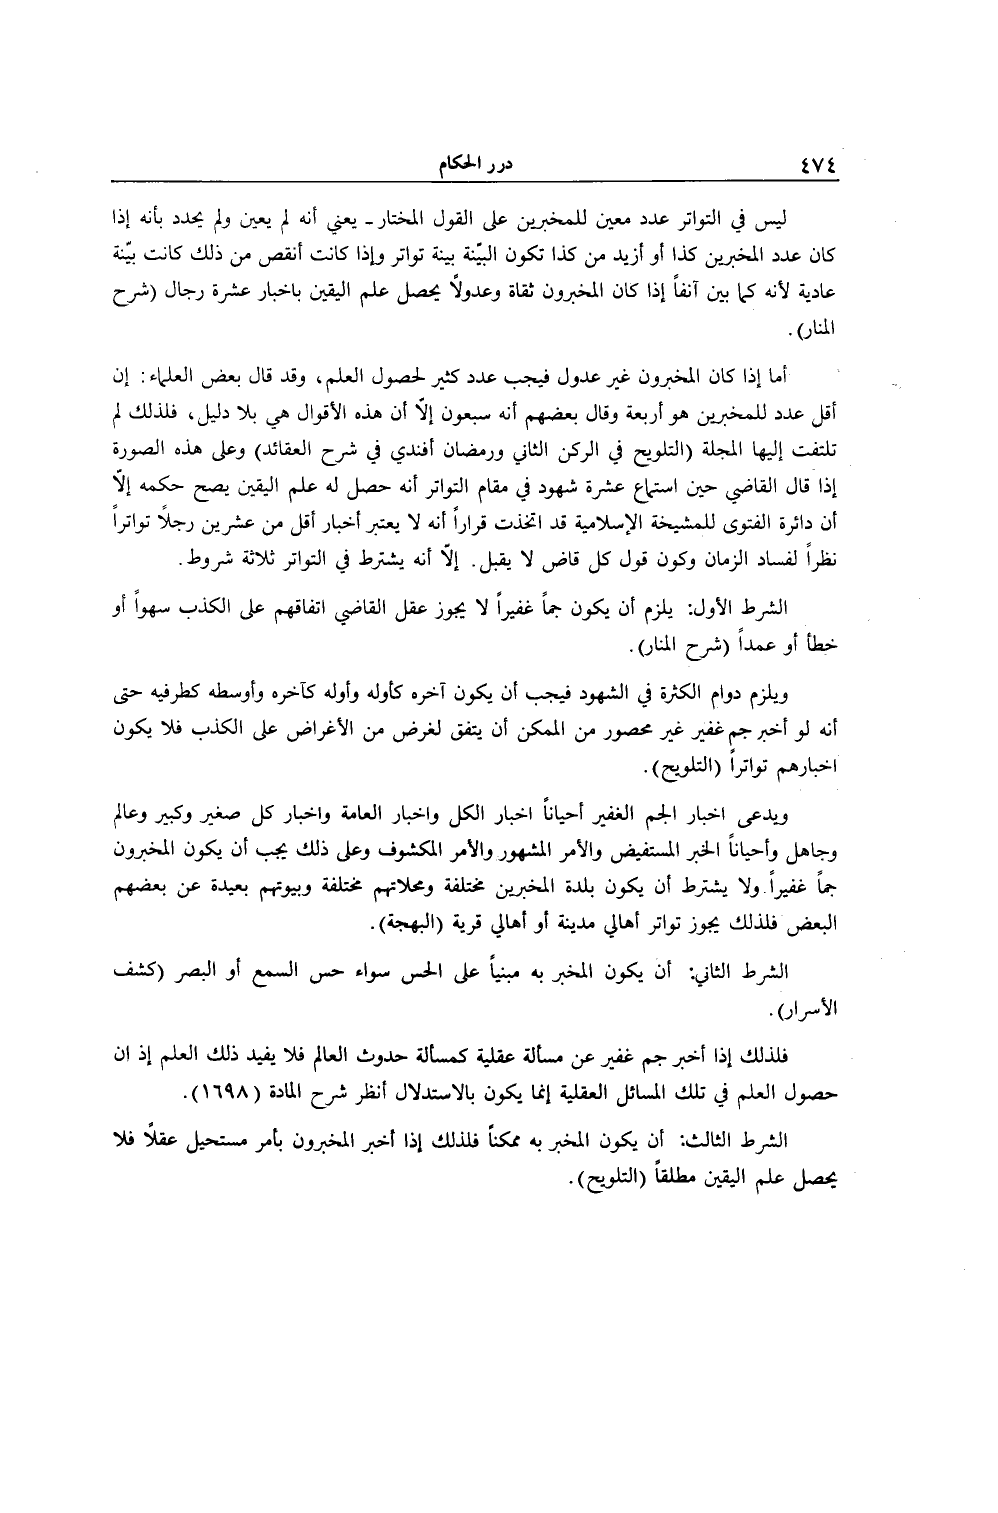 ٤٧٤ درر الحكام
ليس في التواتر عدد معين للمخبرين على القول المختار ـ يعني أنه لم يعين ولم يحدد بأنه إذا
كان عدد المخبرين كذا أو أزيد من كذا تكون البيّنة بينة تواتر وإذا كانت أنقص من ذلك كانت بيّنة
عادية لأنه كما بين آنفاً إذا كان المخبرون ثقاة وعدولاً يحصل علم اليقين باخبار عشرة رجال (شرح
المنار).
أما إذا كان المخبرون غير عدول فيجب عدد كثير لحصول العلم، وقد قال بعض العلماء: إن
أقل عدد للمخبرين هو أربعة وقال بعضهم أنه سبعون إلاّ أن هذه الأقوال هي بلا دليل، فلذلك لم
تلتفت إليها المجلة (التلويح في الركن الثاني ورمضان أفندي في شرح العقائد) وعلى هذه الصورة
إذا قال القاضي حين استماع عشرة شهود في مقام التواتر أنه حصل له علم اليقين يصح حكمه إلاّ
أن دائرة الفتوى للمشيخة الإسلامية قد اتخذت قراراً أنه لا يعتبر أخبار أقل من عشرين رجلاً تواتراً
نظراً لفساد الزمان وكون قول كل قاض لا يقبل. إلاّ أنه يشترط في التواتر ثلاثة شروط.
الشرط الأول: يلزم أن يكون جماً غفيراً لا يجوز عقل القاضي اتفاقهم على الكذب سهواً أو
خطأ أو عمداً (شرح المنار).
ويلزم دوام الكثرة في الشهود فيجب أن يكون آخره كأوله وأوله كآخره وأوسطه كطرفيه حتى
أنه لو أخبر جم غفير غير محصور من الممكن أن يتفق لغرض من الأغراض على الكذب فلا يكون
اخبارهم تواتراً (التلويح).
ويدعى اخبار الجم الغفير أحياناً اخبار الكل واخبار العامة واخبار كل صغير وكبير وعالم
وجاهل وأحياناً الخبر المستفيض والأمر المشهور والأمر المكشوف وعلى ذلك يجب أن يكون المخبرون
جماً غفيراً. ولا يشترط أن يكون بلدة المخبرين مختلفة ومحلاتهم مختلفة وبيوتهم بعيدة عن بعضهم
البعض فلذلك يجوز تواتر أهالي مدينة أو أهالي قرية (البهجة).
الشرط الثاني: أن يكون المخبر به مبنياً على الحس سواء حس السمع أو البصر (كشف
الأسرار).
فلذلك إذا أخبر جم غفير عن مسألة عقلية كمسألة حدوث العالم فلا يفيد ذلك العلم إذ ان
حصول العلم في تلك المسائل العقلية إنما يكون بالاستدلال أنظر شرح المادة (١٦٩٨).
الشرط الثالث: أن يكون المخبر به ممكناً فلذلك إذا أخبر المخبرون بأمر مستحيل عقلاً فلا
يحصل علم اليقين مطلقاً (التلويح).